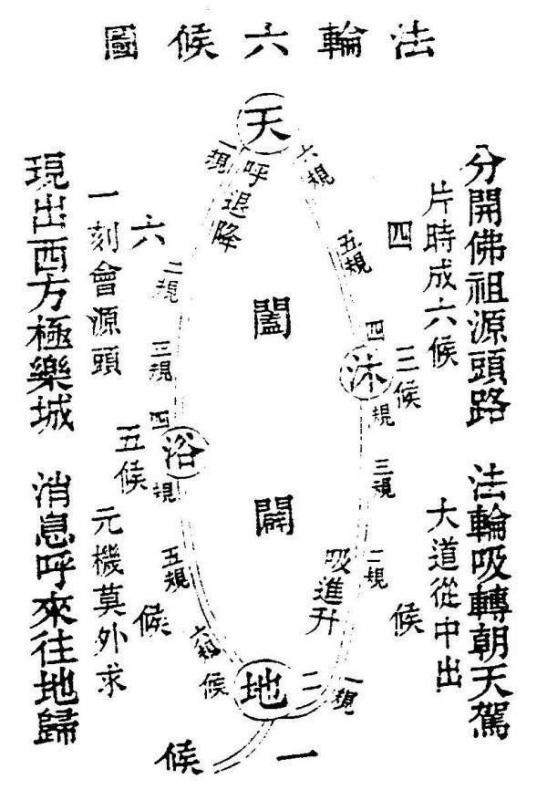 法輪六候圖
分開佛祖源頭路 法輪吸轉朝天駕
片時成六候 大道從中出
四 候
三候
天
六規
五規
四規
沐
三規
二規
一規
吸進升
闔
闢
呼退降
一規
二規
三規
四規
浴
五規
六規
地
二候
五候
六 候
一候
一刻會源頭 元機莫外求
現出西方極樂城 消息呼來往地歸